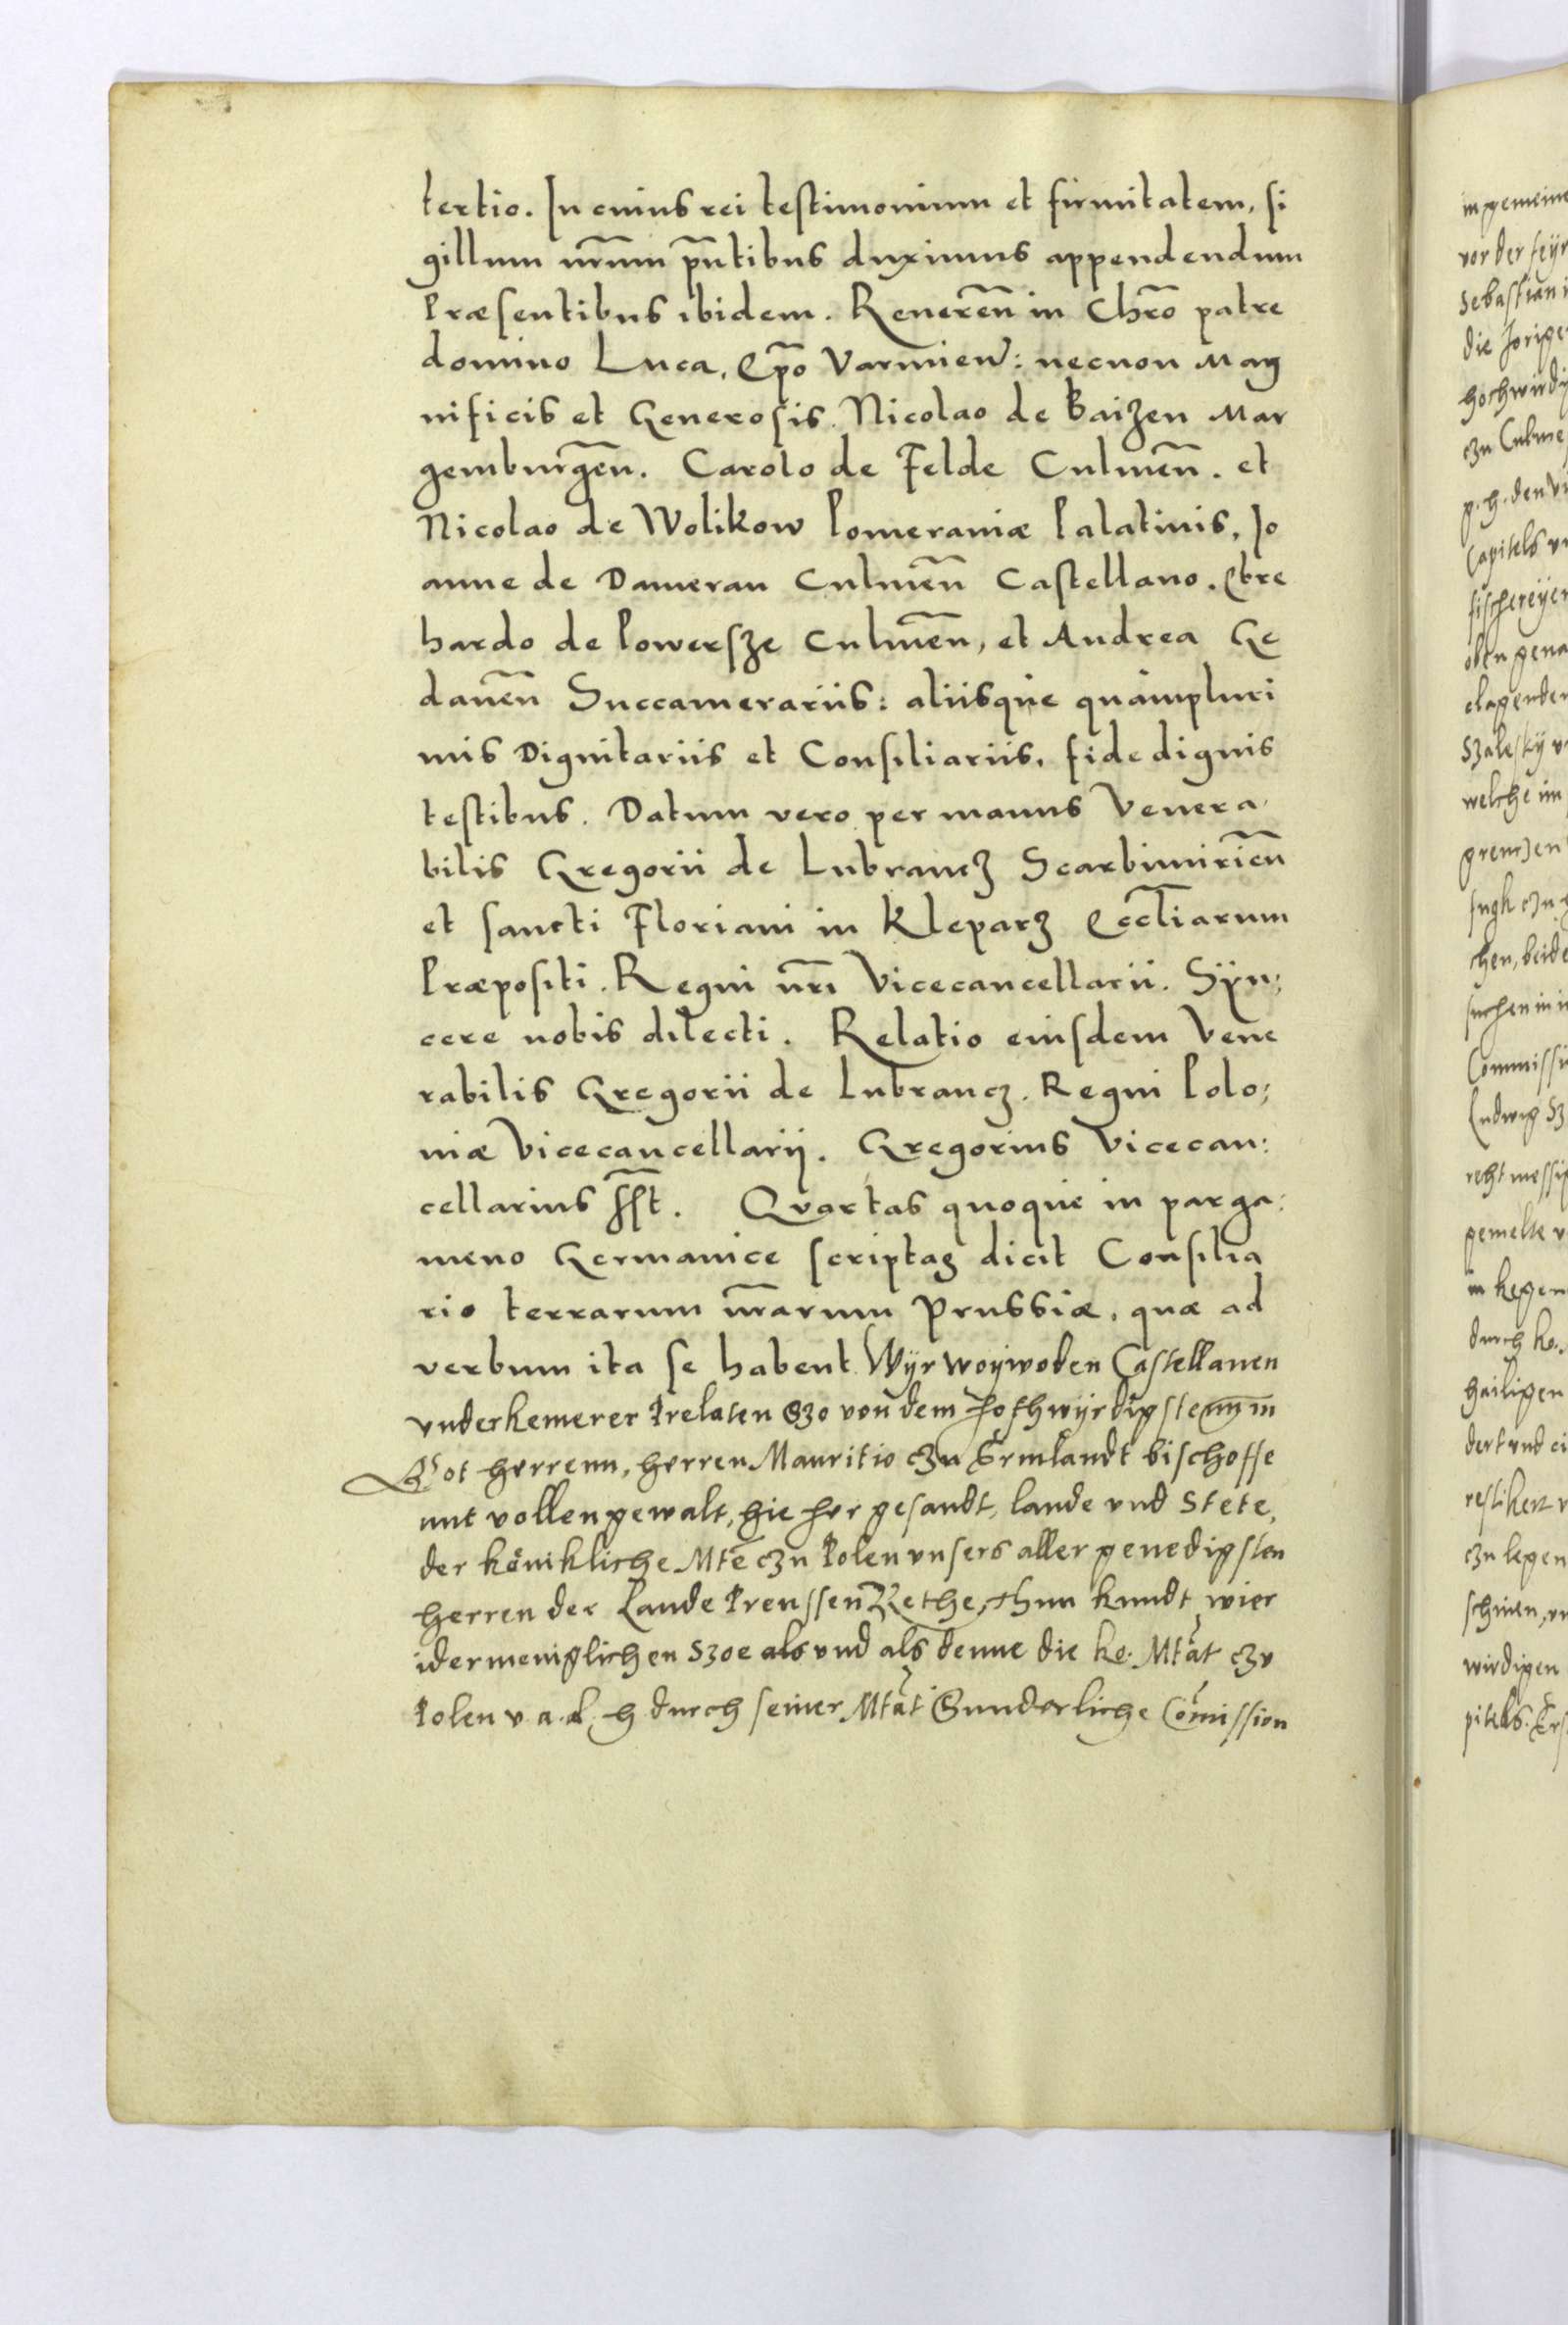 tertio. In cuius rei testimonium et firmitatem, si
gillum nr̃um pñtibus duximus appendendum
Præsentibus ibidem. Reuereñ in Chr̃o patre
domino Luca, Ep̃o Varmieñ: necnon Mag
nificis et Generosis. Nicolao de Baizen Mar
gemburgeñ. Carolo de Felde Culmeñ. et
Nicolao de Wolikow Pomeraniæ Palatinis, Jo
anne de Damerau Culmeñ Castellano. Ebre
hardo de Powersze Culmeñ, et Andrea Ge
daneñ Succamerariis: aliisque quampluri
mis Dignitariis et Consiliariis, fide dignis
testibus. Datum vero per manus Venera,
bilis Gregorii de Lubrancz Scarbimirieñ
et sancti Floriani in Kleparz Eccl̃iarum
Præpositi. Regni nr̃i Vicecancellarii. Syn;
cere nobis dilecti. Relatio eiusdem Vene
rabilis Gregorii de Lubrancz. Regni Polo;
niæ Vicecancellarij. Gregorius Vicecan:
cellarius ss̃t. Quartas quoque in parga:
meno Germanice scriptas dicit Consilia
rio terrarum nr̃arum Prussiæ, quæ ad
verbum ita se habent. Wyr woywoden Castellanen
vnderkemerer Prelaten Szo von dem Hochwyrdigstenn in
Got herrenn, herren Mauritio czu Ermlandt bischoffe
mit vollen gewalt, hie her gesandt, lande vnd Stete,
der königkliche Mtẽ czu Polen vnsers aller genedigsten
herren der Lande Preussen Rethe, Thun kundt wier
idermeniglichen Szoe als vnd als denne die ko. Mtãt czu
Polen v. a. g. h durch seiner Mtãt Sunderliche Com̃ission